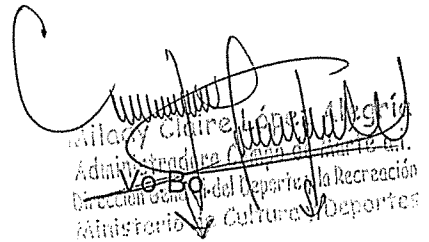 Milagy Claire López Alegría
Administradora Campo de Marte a.i.
Vo.Bo.
Dirección General del Deporte y la Recreación
Ministerio de Cultura y Deportes